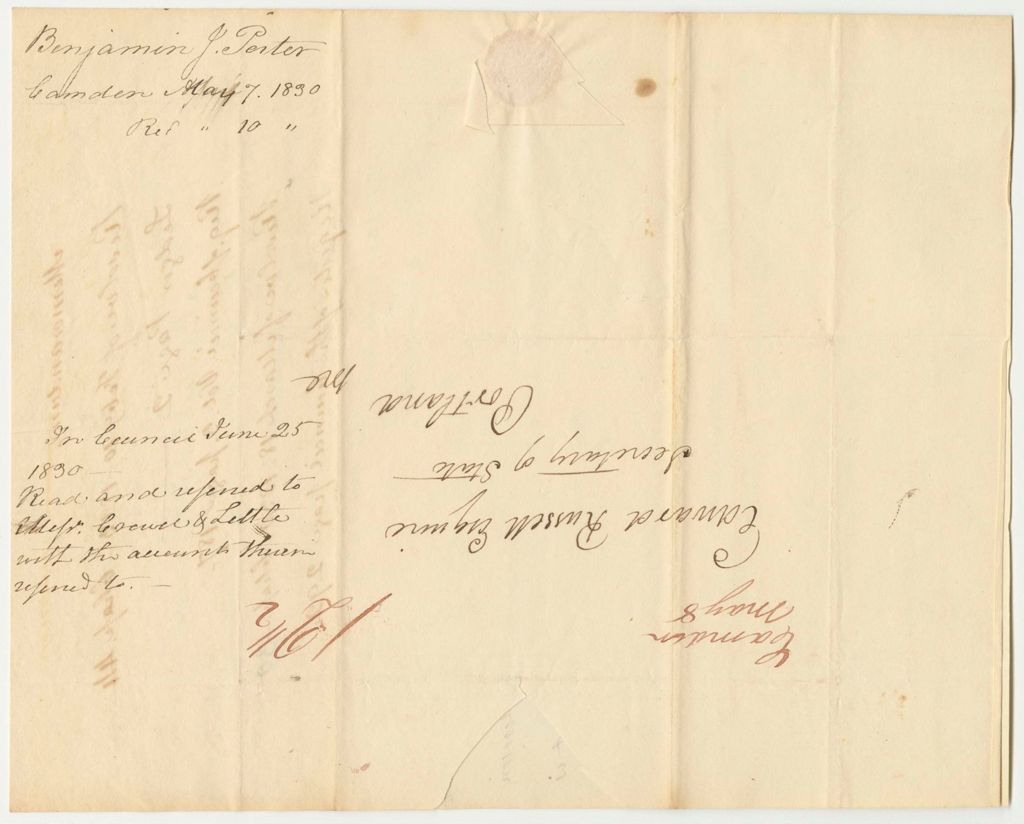 Benjamin J. Porter
Camden May 7. 1830
Rec " 10 "
In Council June 25
1830 —
Read and referred to
Messr. Crowell & Little
with the accounts therein
referred to. —
Camden
May 8
12½
Edward Russell Esquire
Secretary of State
Portland
Me